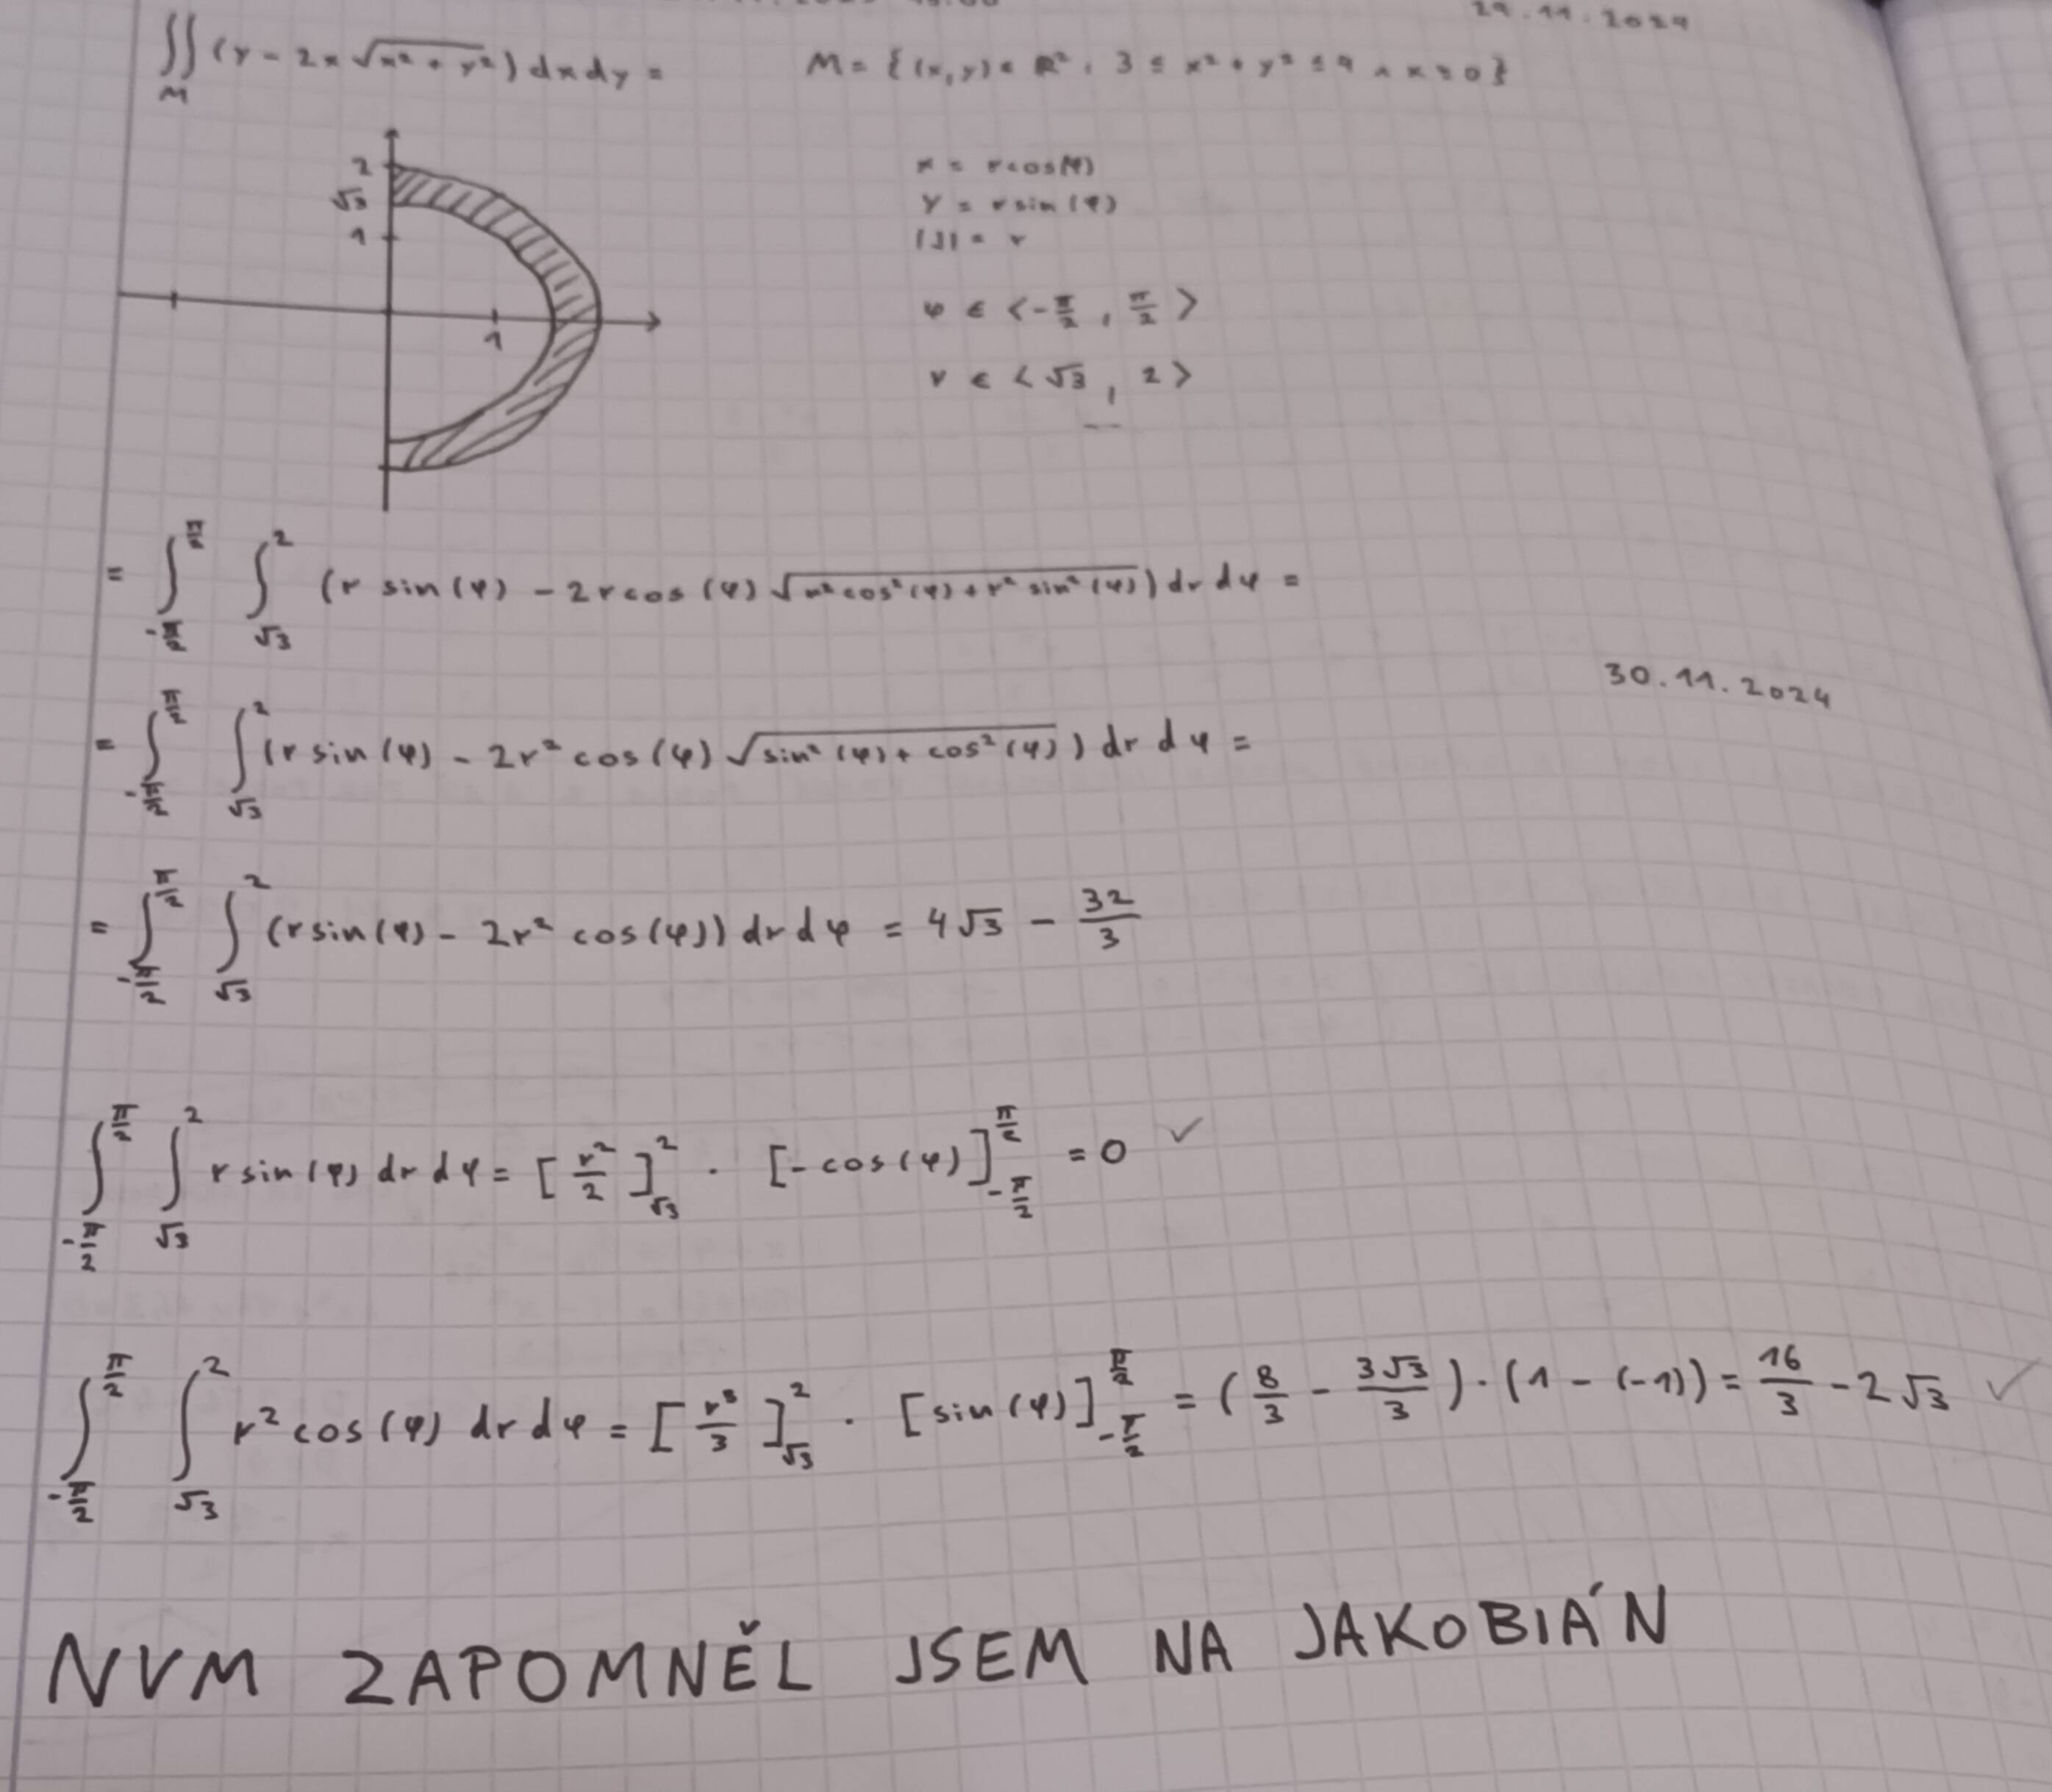 29.11.2024
∬_M (y - 2x √(x² + y²)) dx dy = M = {(x,y) ∈ ℝ², 3 ≤ x² + y² ≤ 4 ∧ x ≥ 0}
2
√3
1
1
x = r cos(φ)
y = r sin(φ)
|J| = r
φ ∈ <-π/2, π/2>
r ∈ <√3, 2>
= ∫_{-π/2}^{π/2} ∫_{√3}^{2} (r sin(φ) - 2r cos(φ) √(r² cos²(φ) + r² sin²(φ))) dr dφ =
30.11.2024
= ∫_{-π/2}^{π/2} ∫_{√3}^{2} (r sin(φ) - 2r² cos(φ) √(sin²(φ) + cos²(φ))) dr dφ =
= ∫_{-π/2}^{π/2} ∫_{√3}^{2} (r sin(φ) - 2r² cos(φ)) dr dφ = 4√3 - 32/3
∫_{-π/2}^{π/2} ∫_{√3}^{2} r sin(φ) dr dφ = [r²/2]_{√3}^{2} · [-cos(φ)]_{-π/2}^{π/2} = 0 ✓
∫_{-π/2}^{π/2} ∫_{√3}^{2} r² cos(φ) dr dφ = [r³/3]_{√3}^{2} · [sin(φ)]_{-π/2}^{π/2} = (8/3 - 3√3/3) · (1 - (-1)) = 16/3 - 2√3 ✓
NVM ZAPOMNĚL JSEM NA JAKOBIÁN